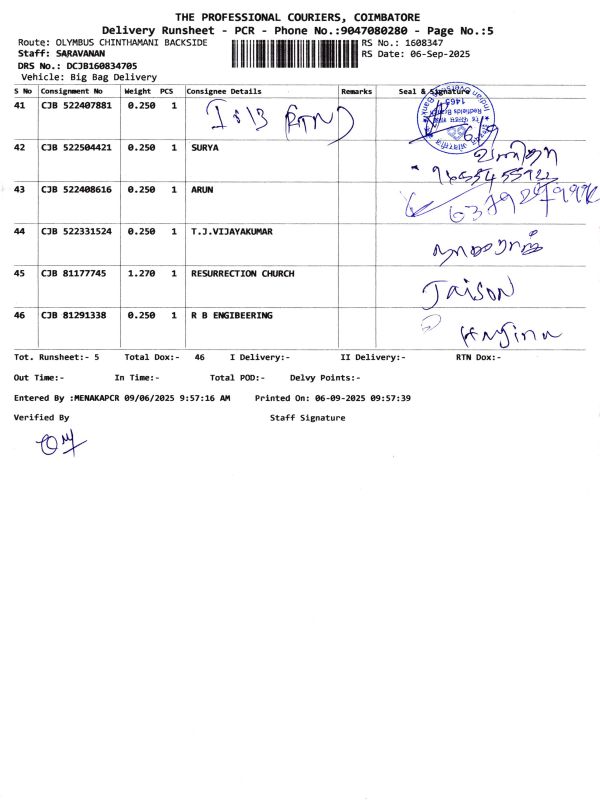 THE PROFESSIONAL COURIERS, COIMBATORE
Delivery Runsheet - PCR - Phone No.:9047080280 - Page No.:5
Route: OLYMBUS CHINTHAMANI BACKSIDE RS No.: 1608347
Staff: SARAVANAN RS Date: 06-Sep-2025
DRS No.: DCJB160834705
Vehicle: Big Bag Delivery
S No Consignment No Weight PCS Consignee Details Remarks Seal & Signature
41 CJB 522407881 0.250 1
Indian Overseas Bank
1465
Redfields Branch
42 CJB 522504421 0.250 1 SURYA
43 CJB 522408616 0.250 1 ARUN
44 CJB 522331524 0.250 1 T.J.VIJAYAKUMAR
45 CJB 81177745 1.270 1 RESURRECTION CHURCH Jaison
46 CJB 81291338 0.250 1 R B ENGIBEERING
Tot. Runsheet:- 5 Total Dox:- 46 I Delivery:- II Delivery:- RTN Dox:-
Out Time:- In Time:- Total POD:- Delvy Points:-
Entered By :MENAKAPCR 09/06/2025 9:57:16 AM Printed On: 06-09-2025 09:57:39
Verified By Staff Signature